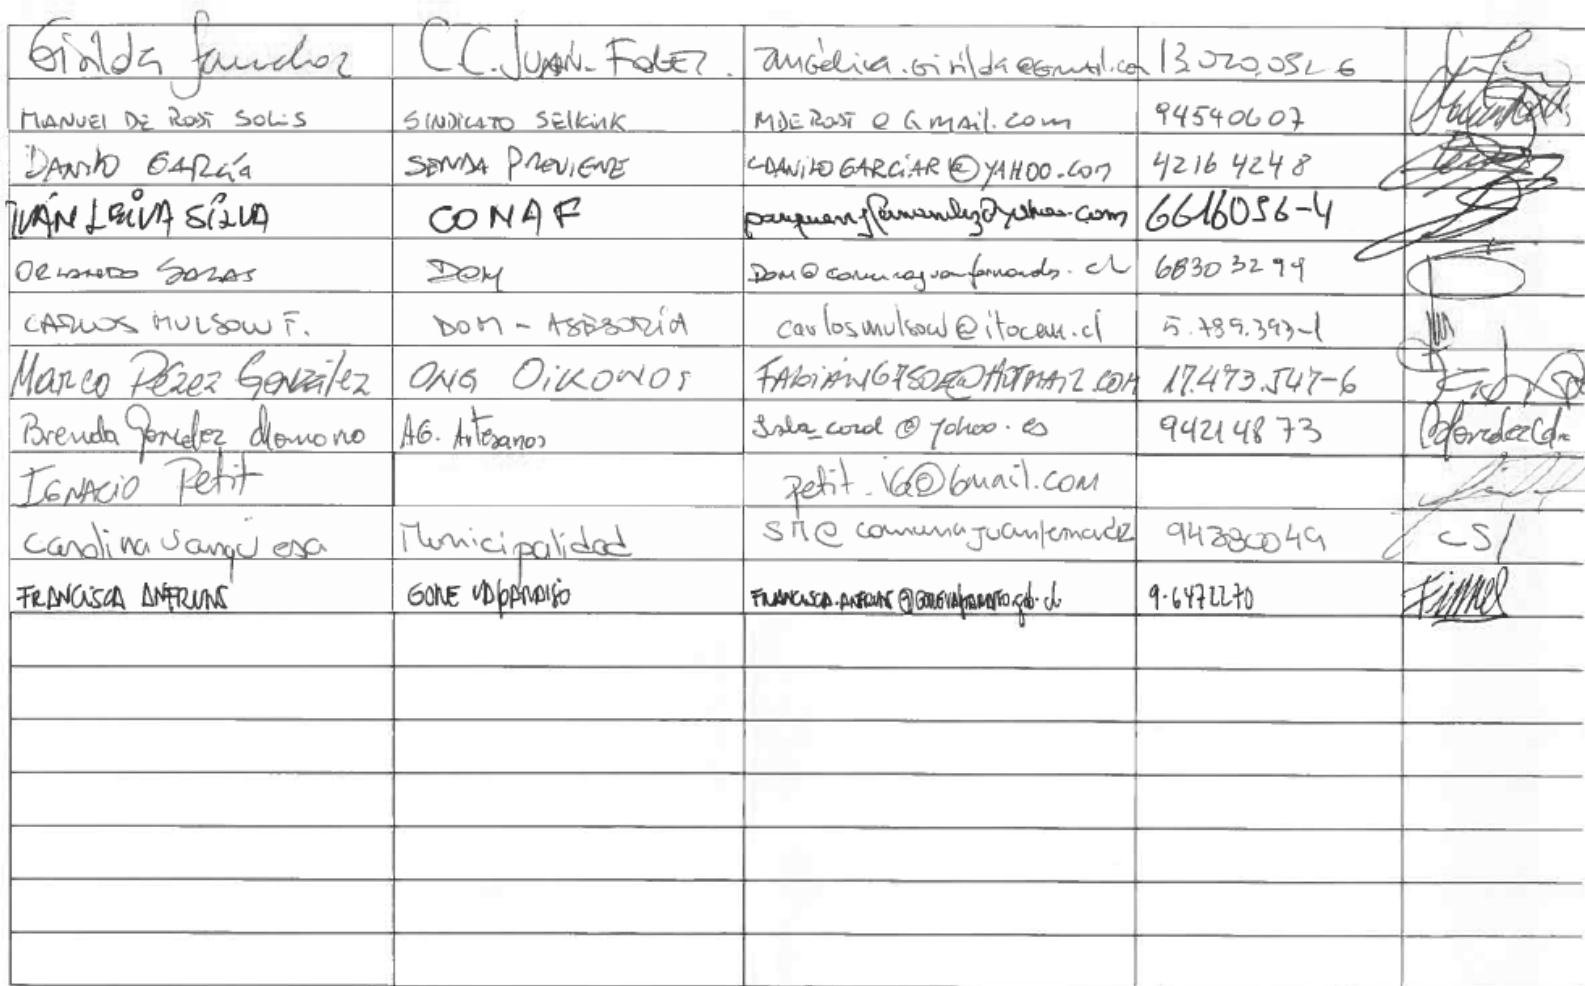 Girilda Sanchez C.C. JUAN. FDEZ. angélica.girilda@gmail.co 13.020.052-6
MANUEL DE RODT SOLIS SINDICATO SELKIRK MDERODT@GMAIL.com 94540607
DANILO GARCÍA SENDA PREVIENE DANILOGARCIAR@YAHOO.COM 42164248
IVÁN LEIVA SILVA CONAF parquejfernandez@yahoo.com 6616056-4
ORLANDO DOM 68303294
CARLOS MULSOW F. DOM - ASESORIA carlosmulsow@itocam.cl 5.789.393-1
Marco Pérez González ONG OiKONOS 17.473.547-6
Brenda AG. Artesanos Isla_coral@yahoo.es 94214873
IGNACIO Petit petit_ig@gmail.com
Carolina Sangüesa Municipalidad SM@comunajuanfernandez 94380049 CS
FRANCISCA ANFRUNS GORE VALPARAISO FRANCISCA.ANFRUNS@GOREVALPARAISO.gob.cl 9-6472270